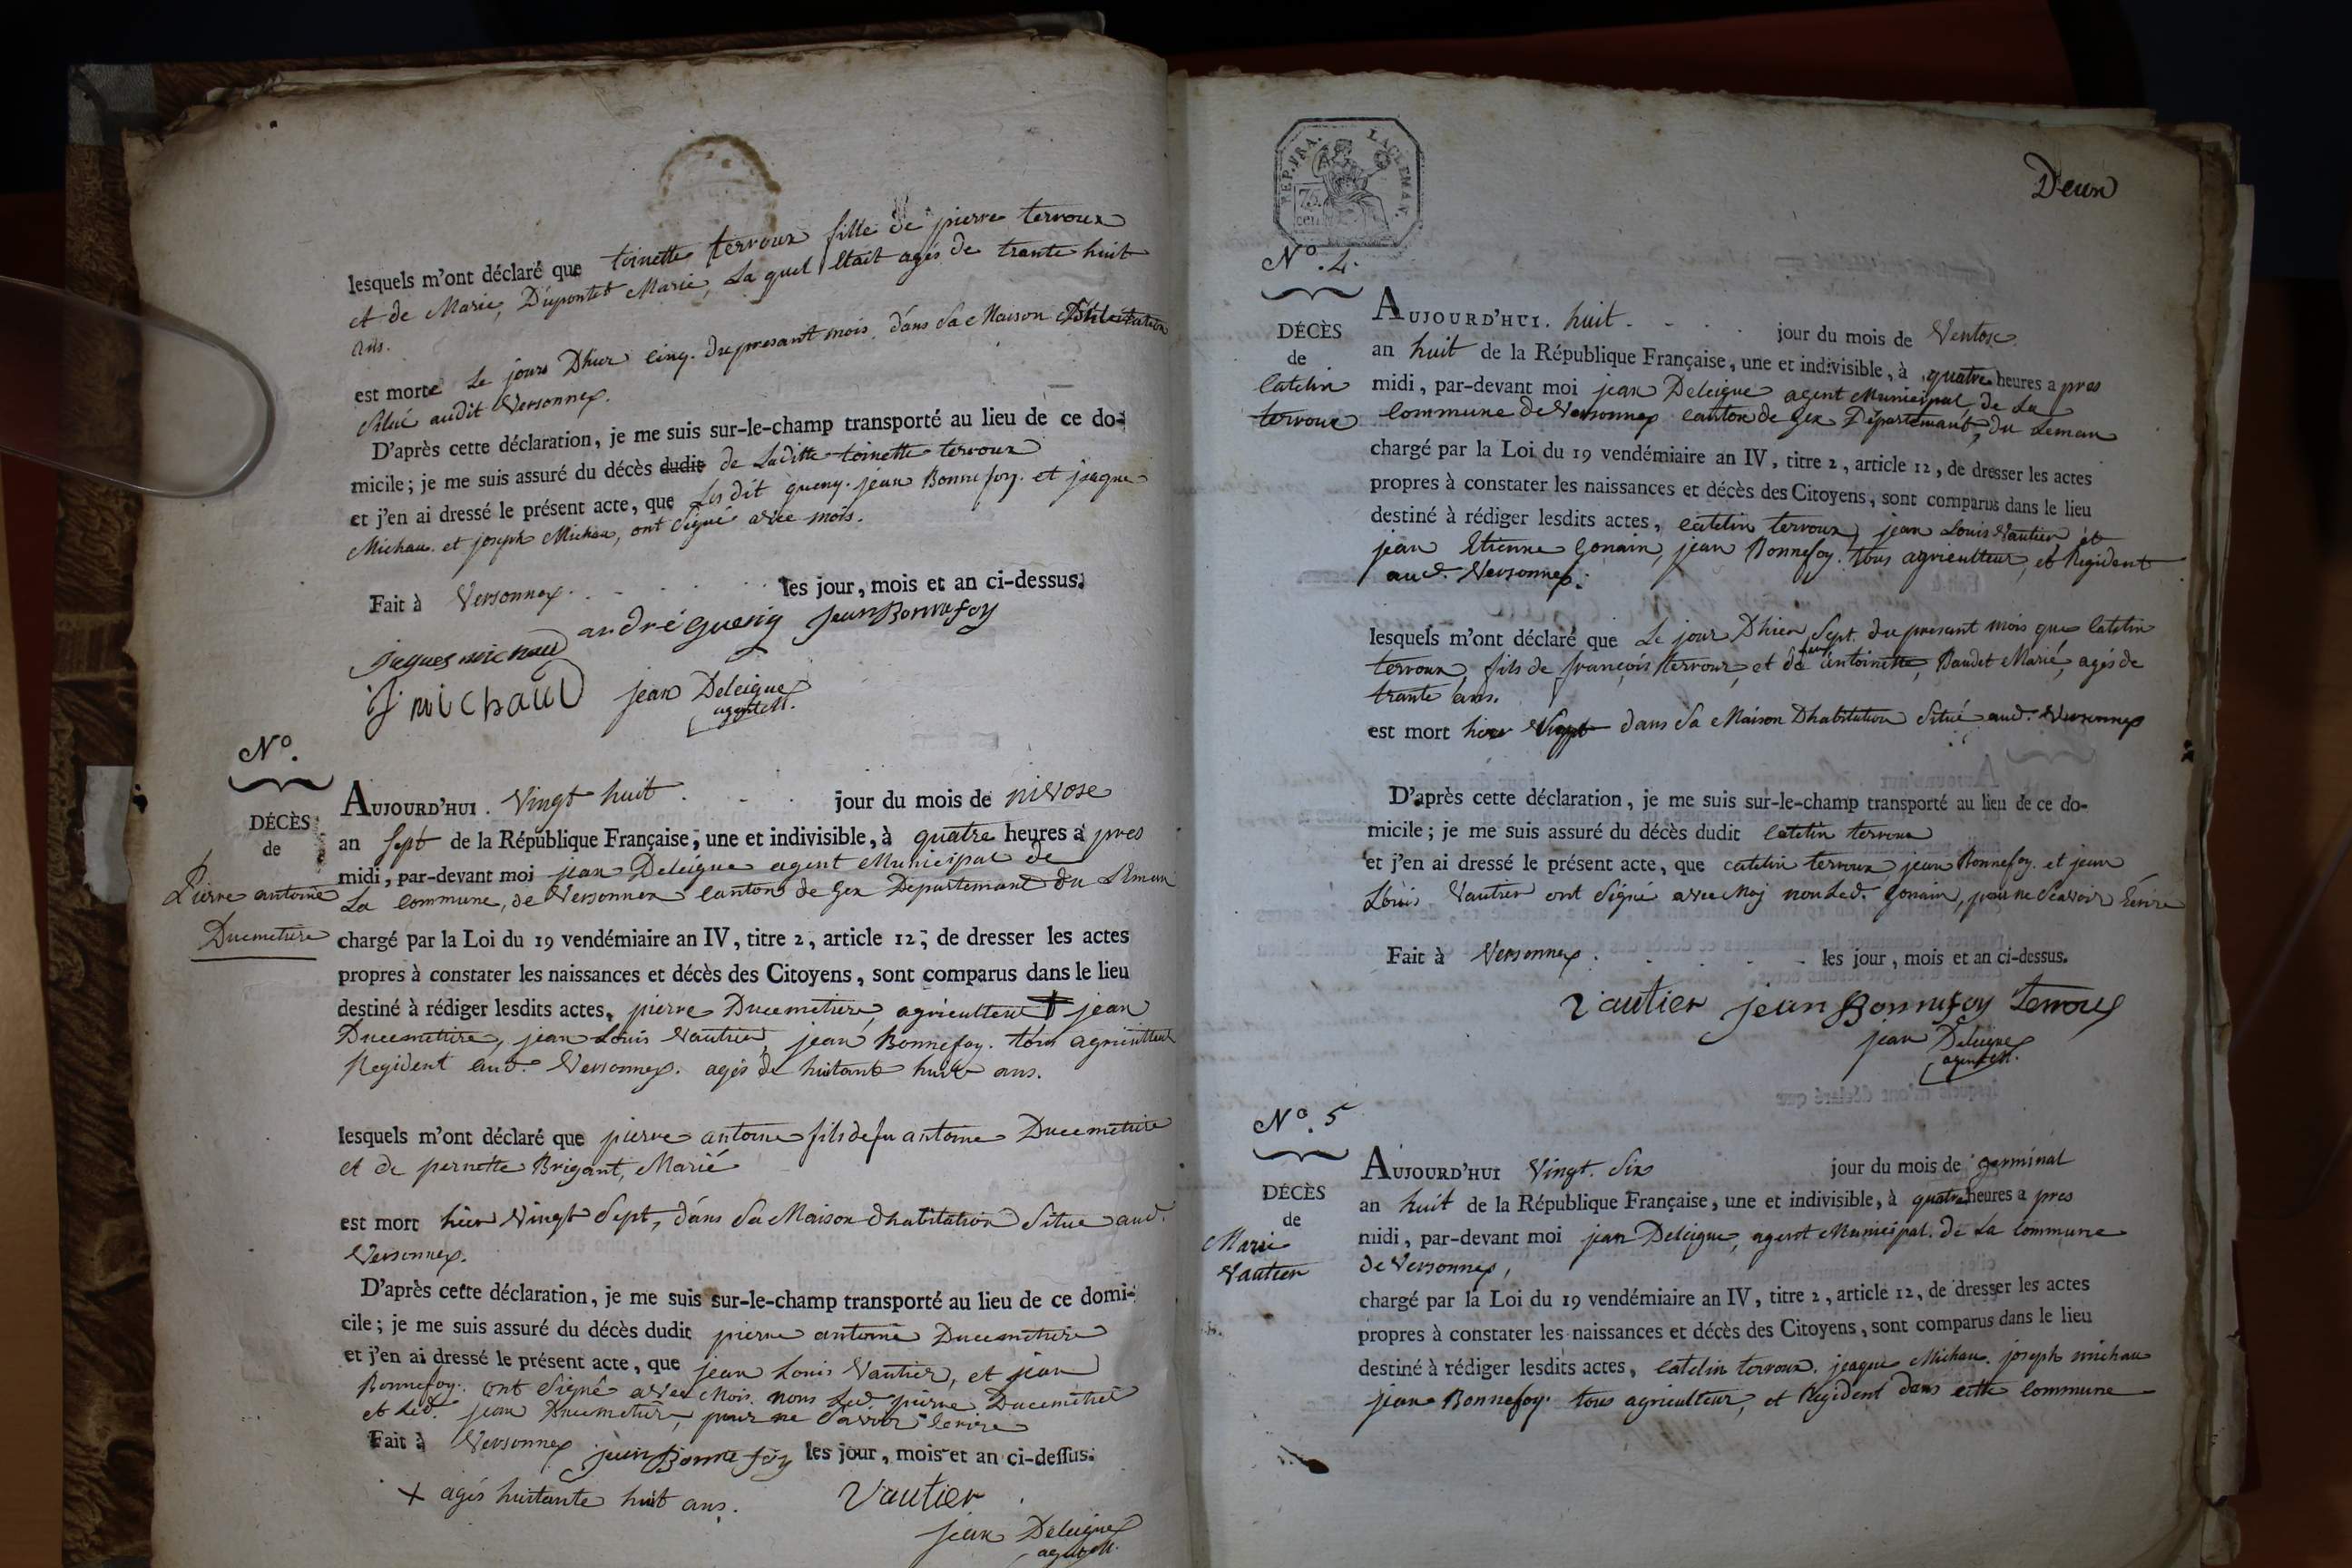 lesquels m'ont déclaré que toinette terroux fille de pierre terroux
et de Marie, Dupontet Marié, La quel était agés de trante huit
ans.
est morte Le jours Dhier cinq. du presant mois. dans sa Maison
Situé audit Versonnex.
D'après cette déclaration, je me suis sur-le-champ transporté au lieu de ce do-
micile; je me suis assuré du décès dudit de Laditte toinette terroux
et j'en ai dressé le présent acte, que Les dit queny. jean Bonnefoy. et jaque
Michau. et joseph Michau, ont Signé avec mois.
Fait à Versonnex. les jour, mois et an ci-dessus.
andré guenig jean Bonnefoy
jaques michaud
j michaud jean Deleigue
agent M.
N°.
DÉCÈS
de
Pierre antoine
Ducimetiere
AUJOURD'HUI. Vingt huit. jour du mois de nivose
an sept de la République Française, une et indivisible, à quatre heures a pres
midi, par-devant moi jean Deleigue agent Municipal de
La Commune, de Versonnex Canton de Gex Département du Léman
chargé par la Loi du 19 vendémiaire an IV, titre 2, article 12, de dresser les actes
propres à constater les naissances et décès des Citoyens, sont comparus dans le lieu
destiné à rédiger lesdits actes, pierre Ducemetiere, agriculteur + jean
Ducemetiere, jean Louis Vautier, jean Bonnefoy. tous agriculteur
Regident aud. Versonnex. agés de huitante huit ans.
lesquels m'ont déclaré que pierre antoine fils de fu antoine Ducemetiere
et de pernette Brigant, Marié
est mort hier Vingt Sept, dans sa Maison dhabitation Situe aud.
Versonnex.
D'après cette déclaration, je me suis sur-le-champ transporté au lieu de ce domi-
cile; je me suis assuré du décès dudit pierre antoine Ducemetiere
et j'en ai dressé le présent acte, que jean Louis Vautier, et jean
Bonnefoy. ont Signé avec Mois. nons Led. pierre Ducemetiere
et Led. jean Ducemetiere, pour ne Savoir Ecrire
Fait à Versonnex jean Bonnefoy les jour, mois et an ci-dessus.
+ agés huitante huit ans.
Vautier
jean Deleigue
agent M.
REP. FRA. LAGLEMAN.
75 cen
Deux
N°. 4.
DÉCÈS
de
Catelin
terroux
AUJOURD'HUI. huit. jour du mois de Ventose
an huit de la République Française, une et indivisible, à quatre heures a pres
midi, par-devant moi jean Deleigue agent Municipal de La
Commune de Versonnex Canton de Gex Département, du Leman
chargé par la Loi du 19 vendémiaire an IV, titre 2, article 12, de dresser les actes
propres à constater les naissances et décès des Citoyens, sont comparus dans le lieu
destiné à rédiger lesdits actes, Catelin terroux, jean Louis Vautier, et
jean Etienne Gonain, jean Bonnefoy. tous agriculteur, et Regident
aud. Versonnex.
lesquels m'ont déclaré que Le jour Dhier, Sept. du presant mois que Catelin
terroux, fils de françois terroux, et de feue antoinette, Baudet Marié, agés de
trante ans.
est mort hier dans Sa Maison Dhabitation Situé aud. Versonnex
D'après cette déclaration, je me suis sur-le-champ transporté au lieu de ce do-
micile; je me suis assuré du décès dudit Catelin terroux
et j'en ai dressé le présent acte, que catelin terroux jean Bonnefoy. et jean
Louis Vautier ont Signé avec Moy non Led. Gonain, pour ne Scavoir Ecrire
Fait à Versonnex. les jour, mois et an ci-dessus.
Vautier jean Bonnefoy Terroux
jean Deleigue
agent M.
N°. 5
DÉCÈS
de
Marie
Vautier
AUJOURD'HUI Vingt. Six jour du mois de germinal
an huit de la République Française, une et indivisible, à quatre heures a pres
midi, par-devant moi jean Deleigue, agent Municipal. de La Commune
de Versonnex,
chargé par la Loi du 19 vendémiaire an IV, titre 2, article 12, de dresser les actes
propres à constater les naissances et décès des Citoyens, sont comparus dans le lieu
destiné à rédiger lesdits actes, Catelin terroux. jeaque Michau. joseph michau
jean Bonnefoy. tous agriculteur, et Regident dans cette Commune